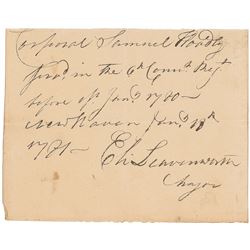 Corporal Samuel Hoadly
serv'd in the 6th Connt Regt
before 1st Jany 1780 —
New Haven Jany 18th
1781 —
Eli Leavenworth
Major